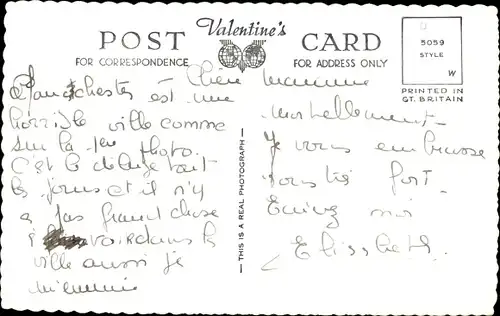 Valentine's
POST CARD
FOR CORRESPONDENCE
FOR ADDRESS ONLY
5059
STYLE
W
PRINTED IN
GT. BRITAIN
THIS IS A REAL PHOTOGRAPH
Chère maman
Manchester est une
horrible ville comme
sur la 1ère photo.
C'est le déluge tout
les jours et il n'y
a pas grand chose
à voir dans la
ville aussi je
m'ennuie
mortellement.
Je vous embrasse
tous très fort.
Ecrivez moi
Elisabeth.